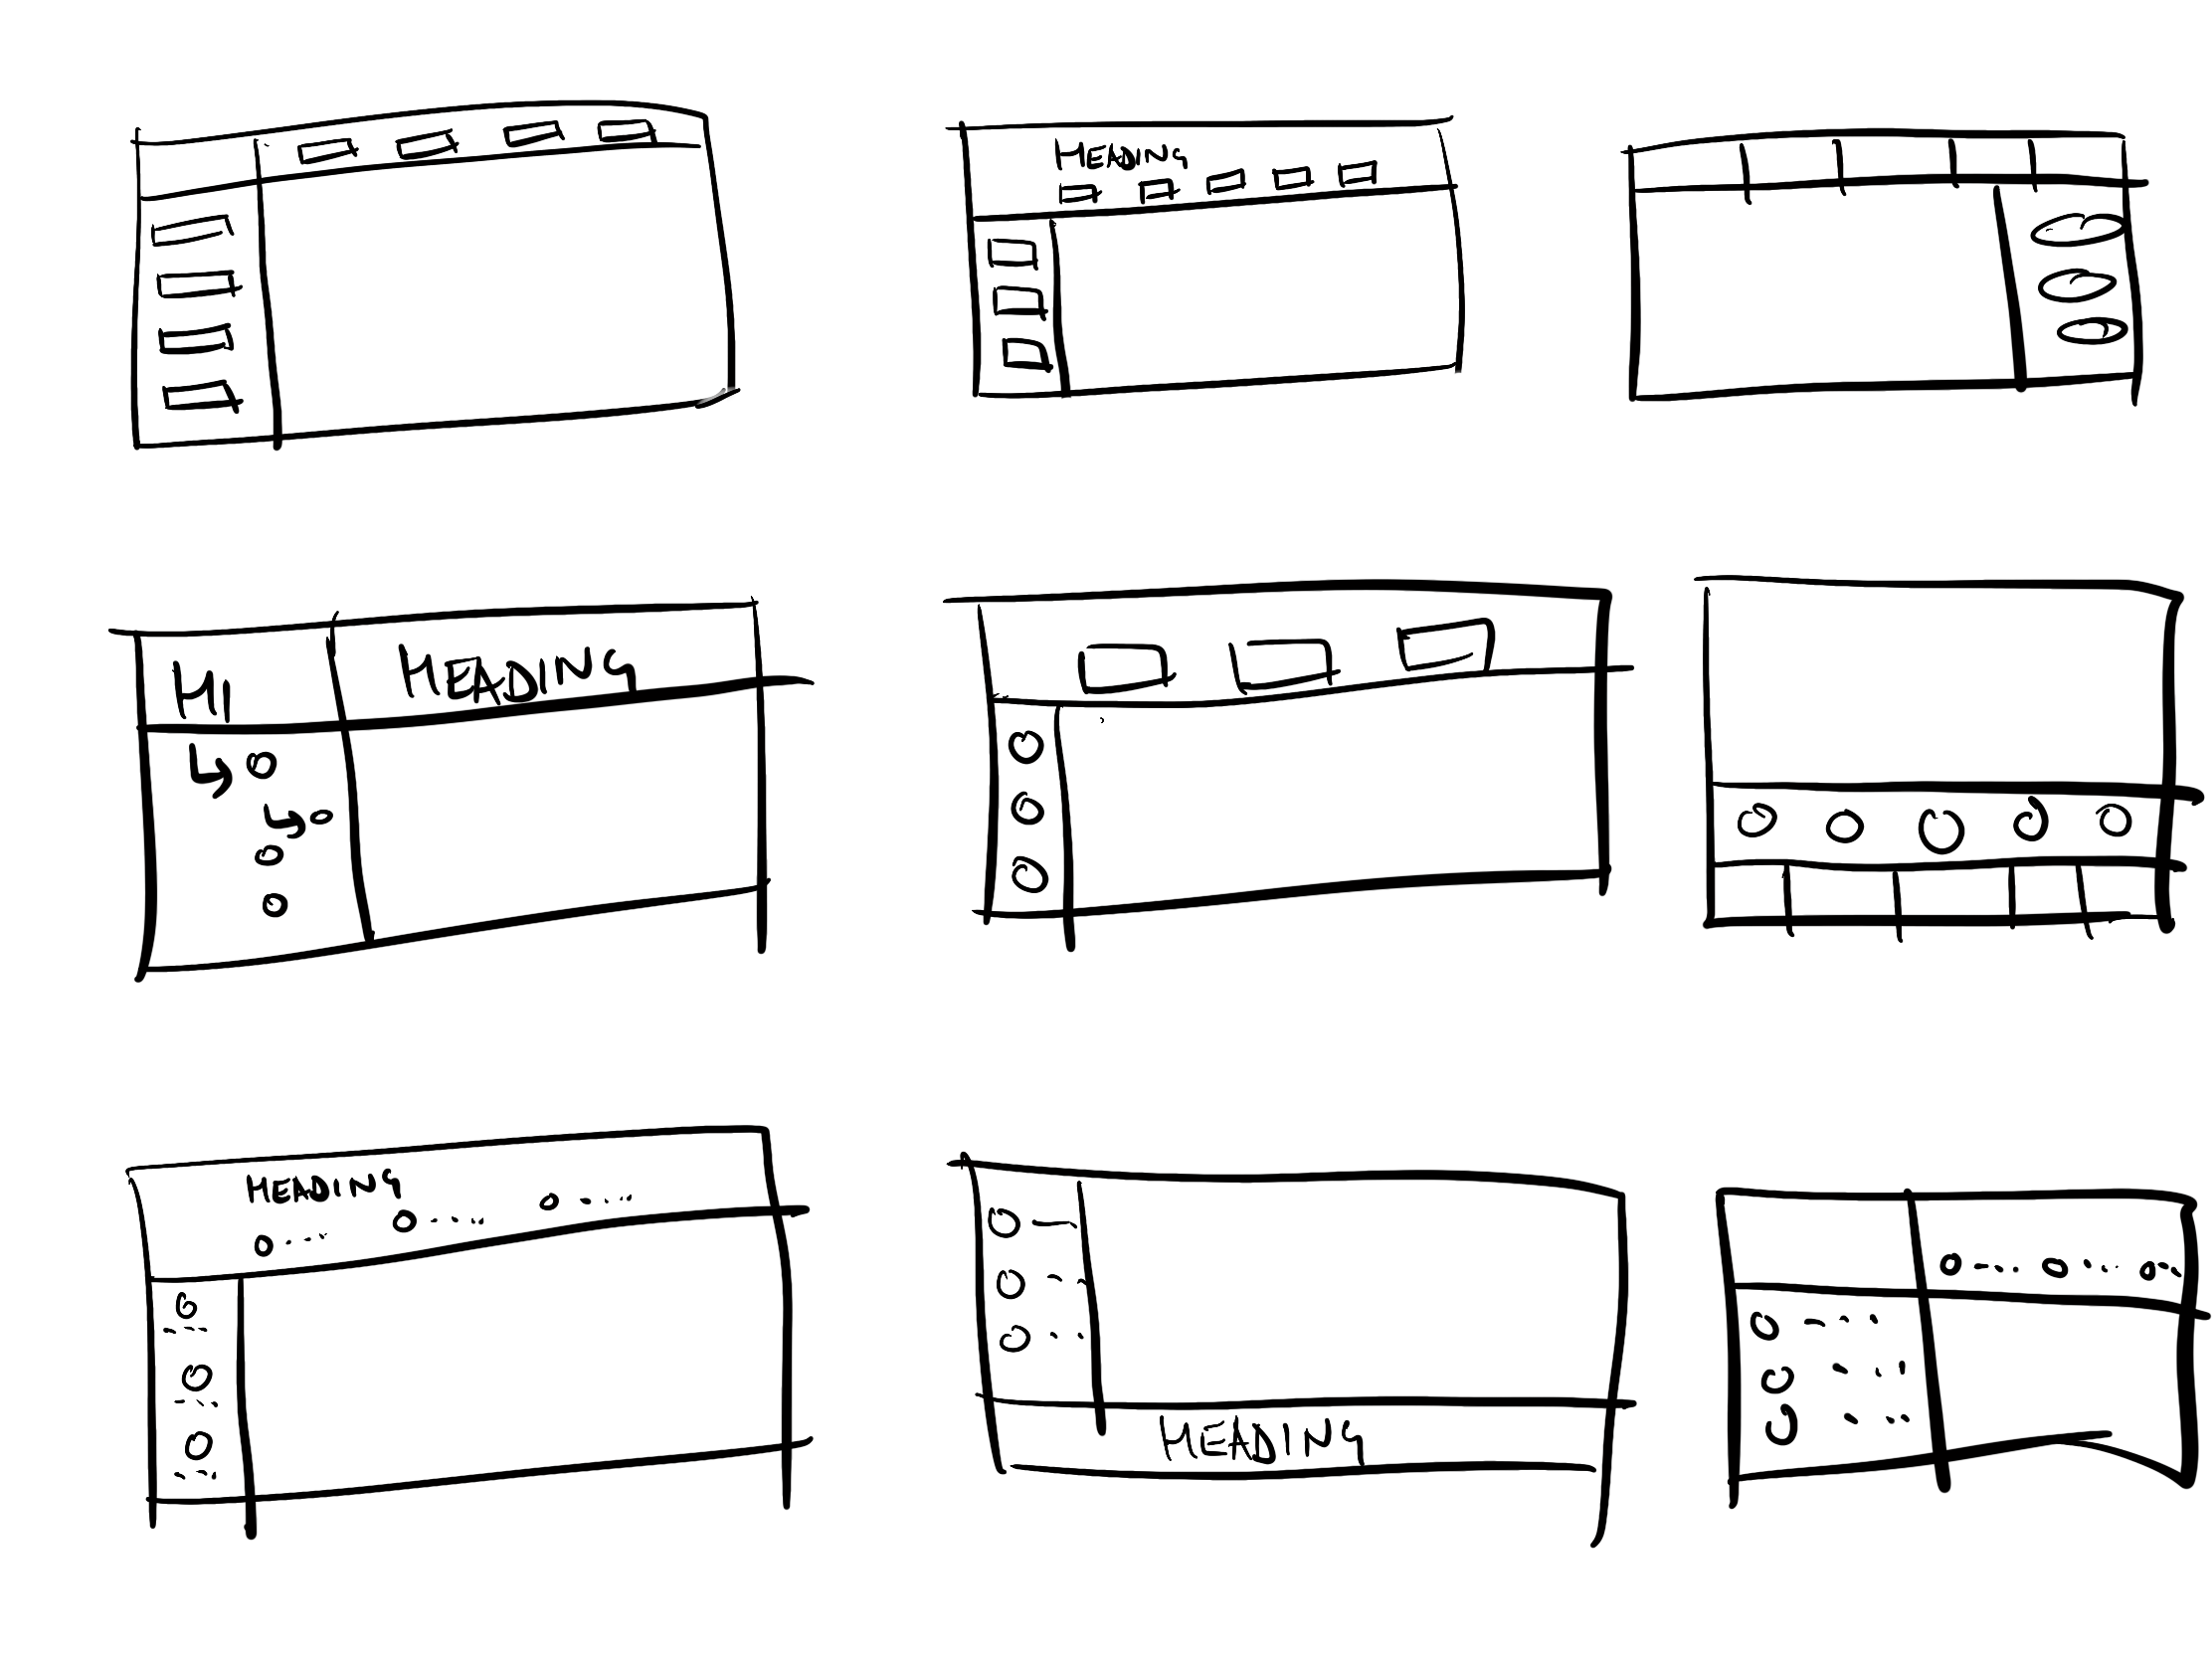 HEADING
HI
HEADING
HEADING
HEADING